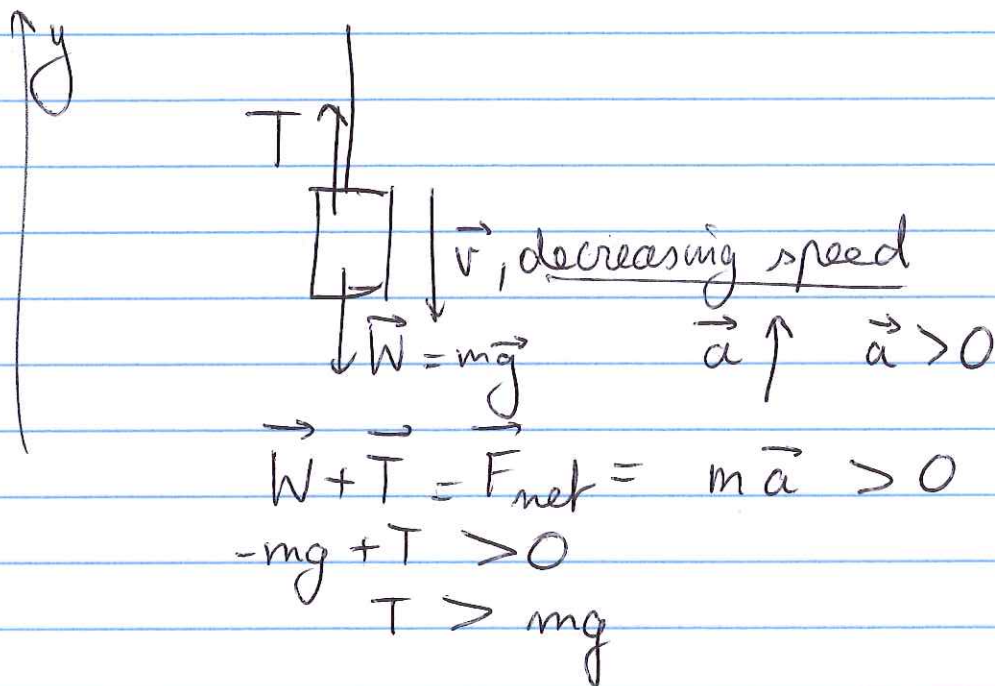 y
T
v⃗, decreasing speed
W⃗ = mg⃗ a⃗ a⃗ > 0
W⃗ + T⃗ = F⃗net = ma⃗ > 0
-mg + T > 0
T > mg